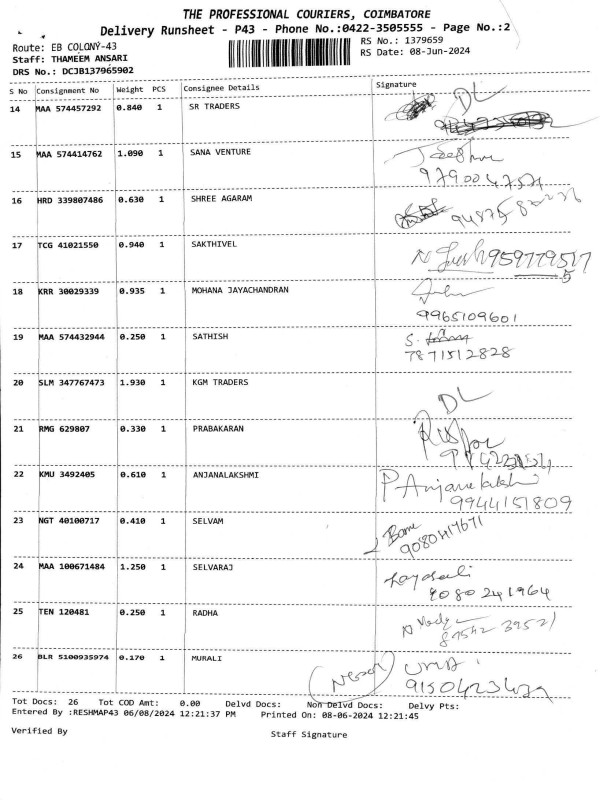 THE PROFESSIONAL COURIERS, COIMBATORE
Delivery Runsheet - P43 - Phone No.:0422-3505555 - Page No.:2
Route: EB COLONY-43
RS No.: 1379659
Staff: THAMEEM ANSARI
RS Date: 08-Jun-2024
DRS No.: DCJB137965902
S No Consignment No Weight PCS Consignee Details Signature
14 MAA 574457292 0.840 1 SR TRADERS DL
15 MAA 574414762 1.090 1 SANA VENTURE
16 HRD 339807486 0.630 1 SHREE AGARAM
17 TCG 41021550 0.940 1 SAKTHIVEL
18 KRR 30029339 0.935 1 MOHANA JAYACHANDRAN
9965109601
19 MAA 574432944 0.250 1 SATHISH S.
7871512828
20 SLM 347767473 1.930 1 KGM TRADERS
DL
21 RMG 629807 0.330 1 PRABAKARAN
22 KMU 3492405 0.610 1 ANJANALAKSHMI P Anjanalakshmi
9944151809
23 NGT 40100717 0.410 1 SELVAM
9080417671
24 MAA 100671484 1.250 1 SELVARAJ
9080241964
25 TEN 120481 0.250 1 RADHA
26 BLR 5100935974 0.170 1 MURALI UMA
Tot Docs: 26 Tot COD Amt: 0.00 Delvd Docs: Non Delvd Docs: Delvy Pts:
Entered By :RESHMAP43 06/08/2024 12:21:37 PM Printed On: 08-06-2024 12:21:45
Verified By Staff Signature